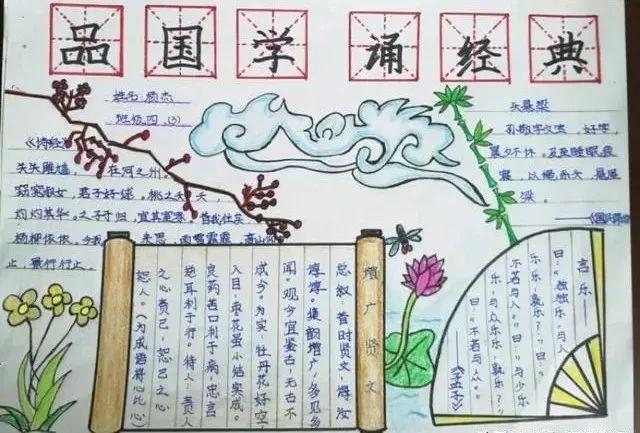 品国学 诵经典
姓名:杨杰
班级四、(3)
《诗经》
关关雎鸠，在河之洲。
窈窕淑女，君子好逑。桃之夭夭，
灼灼其华。之子于归，宜其室家。昔我往矣
杨柳依依。今我来思，雨雪霏霏。高山仰
止，景行行止。
头悬梁
孙敬字文宝，好学，
晨夕不休。及至睡眠疲
寝，以绳系头，悬屋
梁。
增广贤文
总叙 昔时贤文，悔汝
谆谆。集韵增广，多见多
闻。观今宜鉴古，无古不
成今。为实：牡丹花好空
入目，枣花虽小结实成。
良药苦口利于病，忠言
逆耳利于行。待人：责人
之心责己，恕己之心
恕人。（为成语将心比心）
言乐
曰：“独乐乐，与人
乐乐，孰乐？”曰：“
不若与人”曰：“与少乐
乐，与众乐乐，孰乐？”
曰：“不若与众。”
——《孟子》